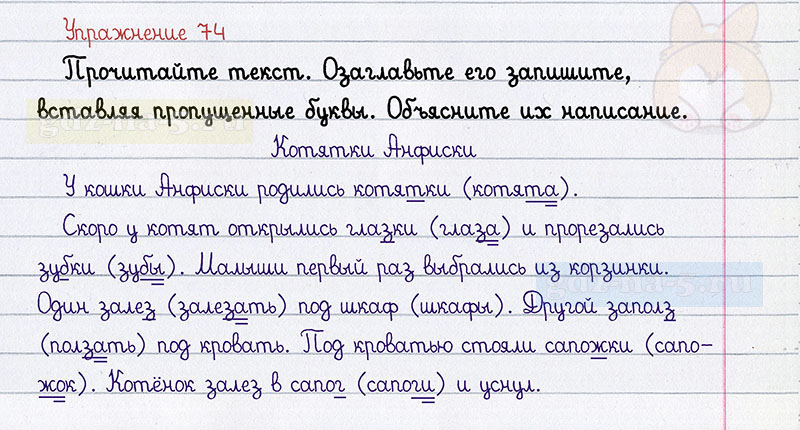 Упражнение 74
Прочитайте текст. Озаглавьте его запишите,
вставляя пропущенные буквы. Объясните их написание.
Котятки Анфиски
У кошки Анфиски родились котятки (котята).
Скоро у котят открылись глазки (глаза) и прорезались
зубки (зубы). Малыши первый раз выбрались из корзинки.
Один залез (залезать) под шкаф (шкафы). Другой заполз
(ползать) под кровать. Под кроватью стояли сапожки (сапо-
жок). Котёнок залез в сапог (сапоги) и уснул.